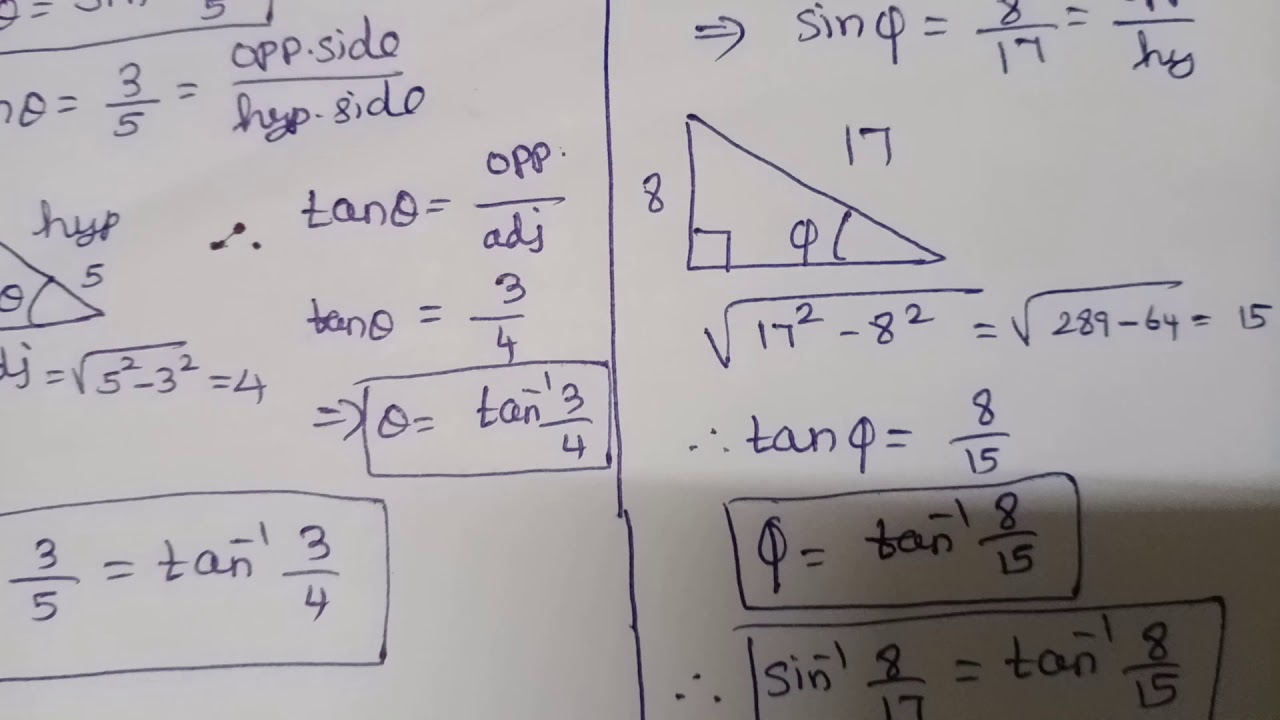 θ = sin 5
nθ = 3/5 = opp.side/hyp.side
hyp
5
θ
dj = √(5²-3²) = 4
∴ tanθ = opp./adj
tanθ = 3/4
⇒ θ = tan⁻¹ 3/4
3/5 = tan⁻¹ 3/4
⇒ sin φ = 8/17 = /hy
17
8
φ
√(17² - 8²) = √(289-64) = 15
∴ tan φ = 8/15
φ = tan⁻¹ 8/15
∴ sin⁻¹ 8/17 = tan⁻¹ 8/15